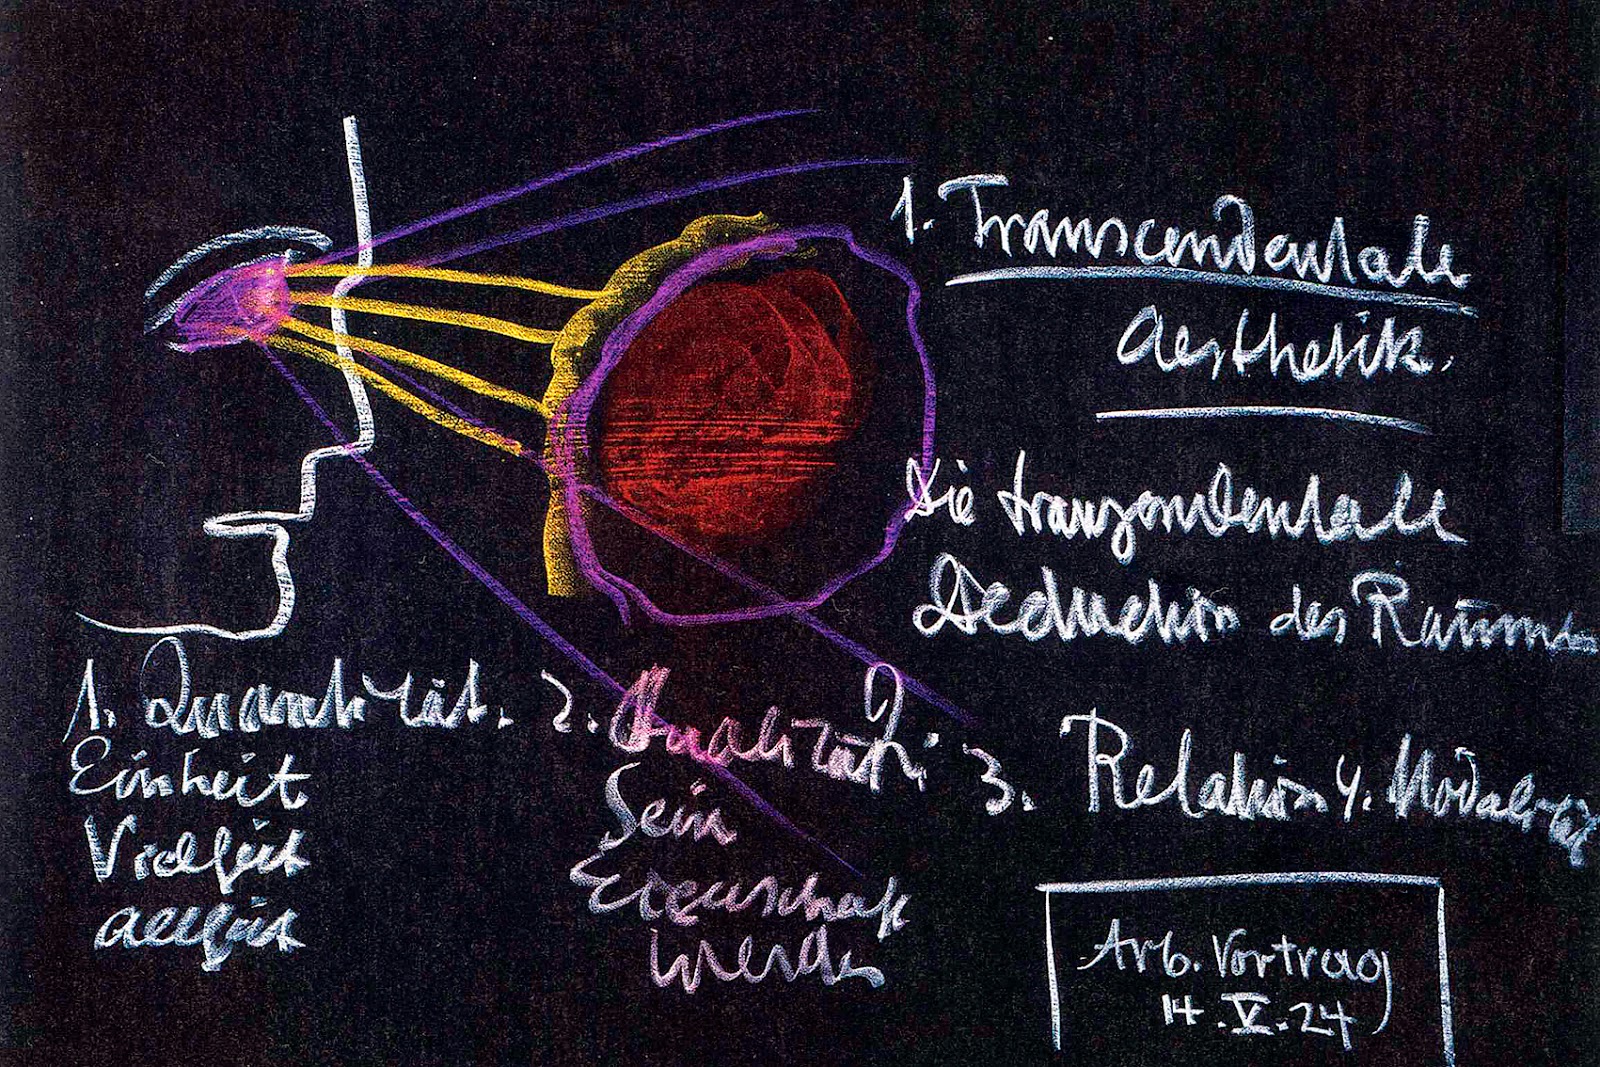 1. Transcendentale
Aesthetik.
Die tranzendentale
Deduction des Raumes
1. Quantität.
Einheit
Vielheit
Allheit
2. Qualität.
Sein
Eigenschaft
Werden
3. Relation
4. Modalität
Arb. Vortrag
14.V.24